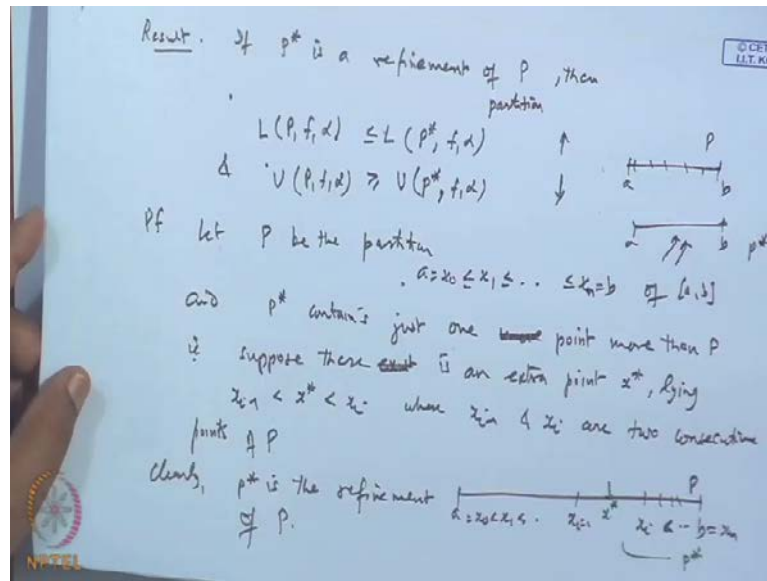 Result. If P* is a refinement of P, then
partition
L(P, f, α) ≤ L(P*, f, α) ↑
& U(P, f, α) ≥ U(P*, f, α) ↓
P
a b
a b P*
Pf Let P be the partition
a = x₀ ≤ x₁ ≤ .. ≤ xₙ = b of [a, b]
and P* contains just one point more than P
ie suppose there is an extra point x*, lying
xᵢ₋₁ < x* < xᵢ where xᵢ₋₁ & xᵢ are two consecutive
points of P
Clearly, P* is the refinement
of P.
P
a = x₀ < x₁ < . xᵢ₋₁ x* xᵢ < -- b = xₙ
P*
© CET
I.I.T. K
NPTEL